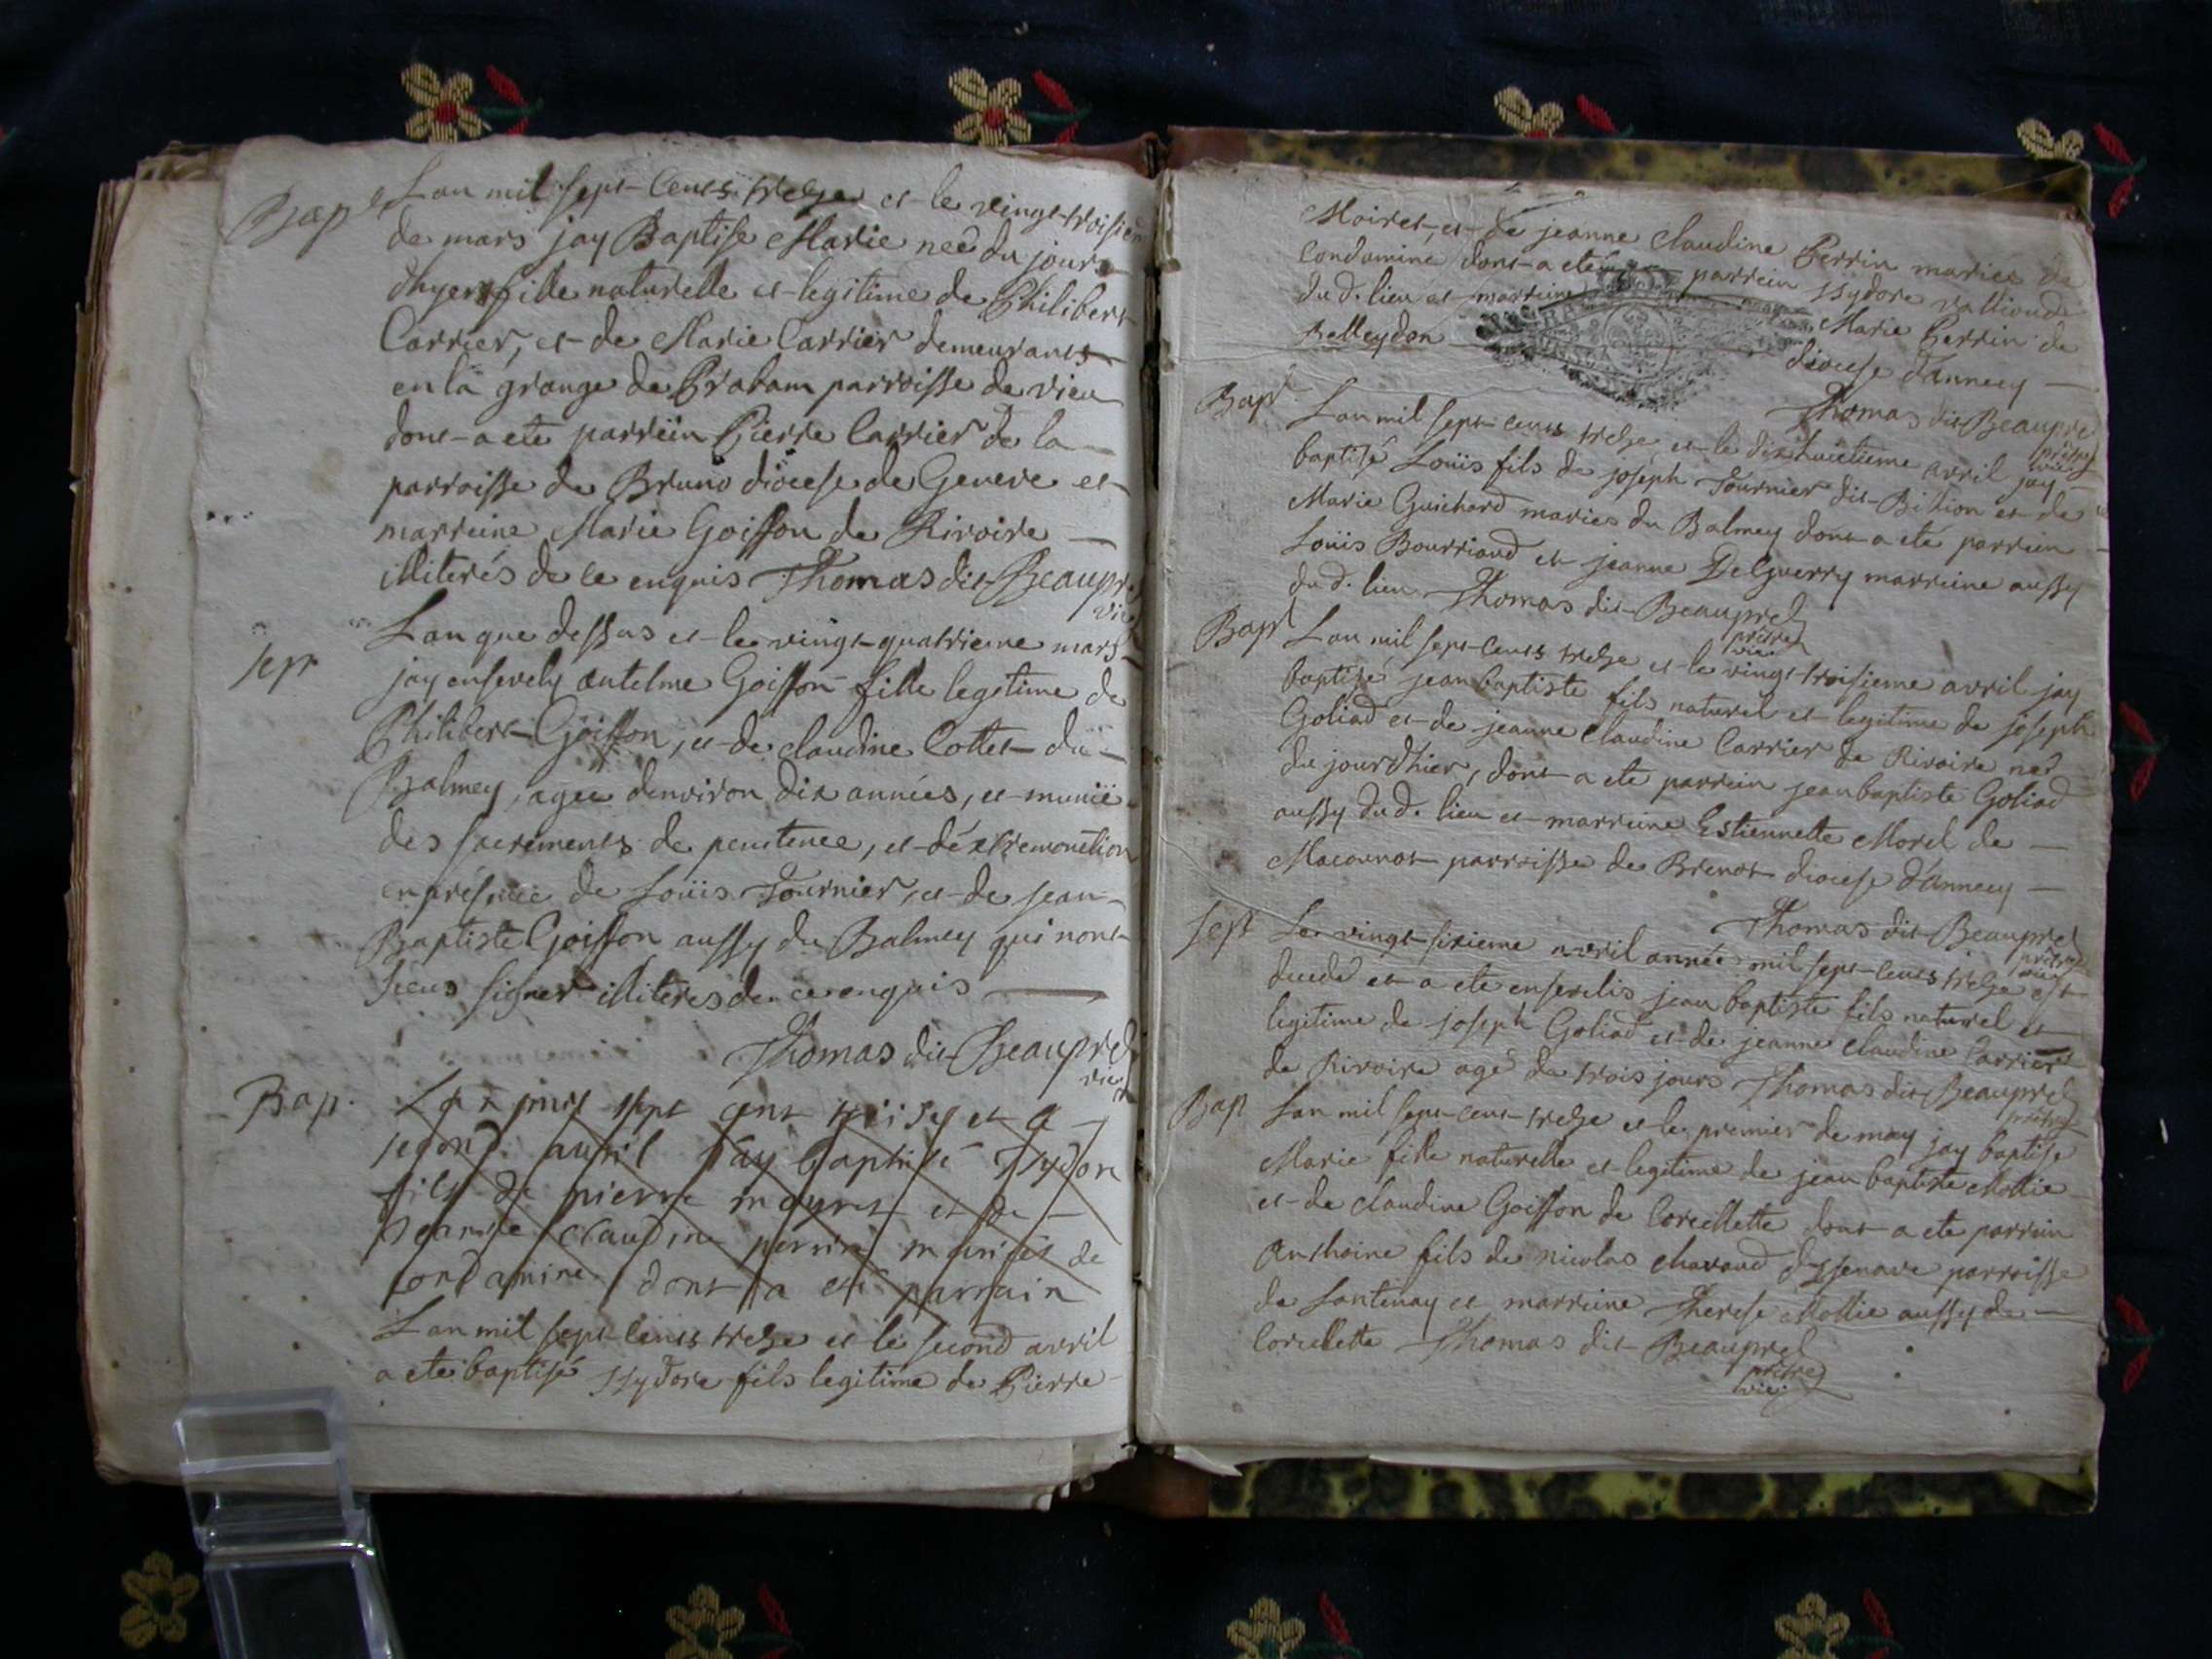 Bap
Lan mil sept cents treize et le vingt troisiem
de mars jay Baptisé Marie neé du jour
dhyer fille naturelle et legitime de Philibert
Carrier, et de Marie Carrier demeurants
en la grange de parroisse de vieu
dont a eté parrein Pierre Carrier de la
parroisse de Bruno diocese de Geneve et
marreine Marie Goiffon de Rivoire
illiterés de ce enquis Thomas dit Beaupre
vic
sep
Lan que dessus et le vingt quatrieme mars
jay ensevely antelme Goiffon fille legetime de
Philibert Goiffon, et de claudine Cottet du
Balmey, agee denviron dix années, et munië
des sacrements de penitence, et déxtremonction
en présence de Loüis Tournier, et de jean
Baptiste Goiffon aussy du Balmey qui nont
sceus signer illiteres de ce enquis
Thomas dit Beauprel
vic
Bap.
Lan mil sept cent treise et le
segond auril jay baptisé Isydon
fils de pierre moyret et de
jeanne claudine perrin mariés de
condamine dont a eté parrain
Lan mil sept cents treize et le second avril
a eté baptisé Issydore fils legitime de Pierre
Moiret, et de jeanne claudine Perrin mariés de
Condamine dont a eté parrein Issydore vallioud
du d. lieu et marreine Marie Perrin de
Belleydon diocese d'Annecy
Thomas dit Beauprel
prétre
vic
Bap
Lan mil sept cents treize et le dixhuictieme avril jay
baptisé Loüis fils de joseph Tournier dit Billion et de
Marie Guichard mariés du Balmey dont a eté parrein
Loüis Bourriaud et jeanne DeGuerry marreine aussy
du d. lieu Thomas dit Beauprel
prétre
vic
Bap
Lan mil sept cents treize et le vingt troisieme avril jay
baptizé jean baptiste fils naturel et legitime de joseph
Goliad et de jeanne Claudine Carrier de Rivoire né
du jourdhier, dont a eté parrein jean baptiste Goliad
aussy du d. lieu et marreine Estiennette Morel de
Maconnot parroisse de Brenot diocese d'Annecy
Thomas dit Beauprel
prétre
vic
sept
Le vingt sixieme avril année mil sept cents treize est
decedé et a eté ensevelis jean baptiste fils naturel et
legitime de joseph Goliad et de jeanne claudine Carrier
de Rivoire agé de trois jours Thomas dit Beauprel
prétre
Bap
Lan mil sept cent treize et le premier de may jay baptisé
Marie fille naturelle et legitime de jean baptiste Mollie
et de claudine Goiffon de Corcellette dont a eté parrein
Anthoine fils de nicolas chavand parroisse
de Lantenay et marreine Therese Mollie aussy de
Corcellette Thomas dit Beauprel
prétre
vic